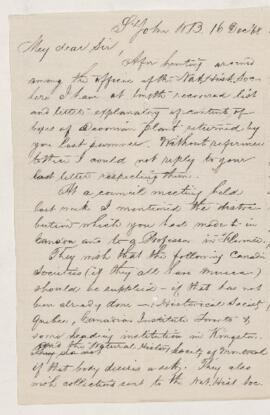 St John NB. 16 Dec
My dear Sir,
After hunting around
among the offices of the Nat. Hist. Soc.
here I have at length recovered list
and letter explanatory of contents of
boxes of Devonian plants returned by
you last summer. Without reference
to this I could not reply to your
last letter respecting them.
At a council meeting held
last week I mentioned the distri-
bution which you had made in
Canada and to a Professor in
They wish that the following Canadian
Societies (if they all have museums)
should be supplied - if that has not
been already done - Historical Society
Quebec, Canadian Institute Toronto &
some leading institution in Kingston.
and the Natural History Society of Montreal
if that body desires a set; They also
wish collections sent to the Nat. Hist. Soc.